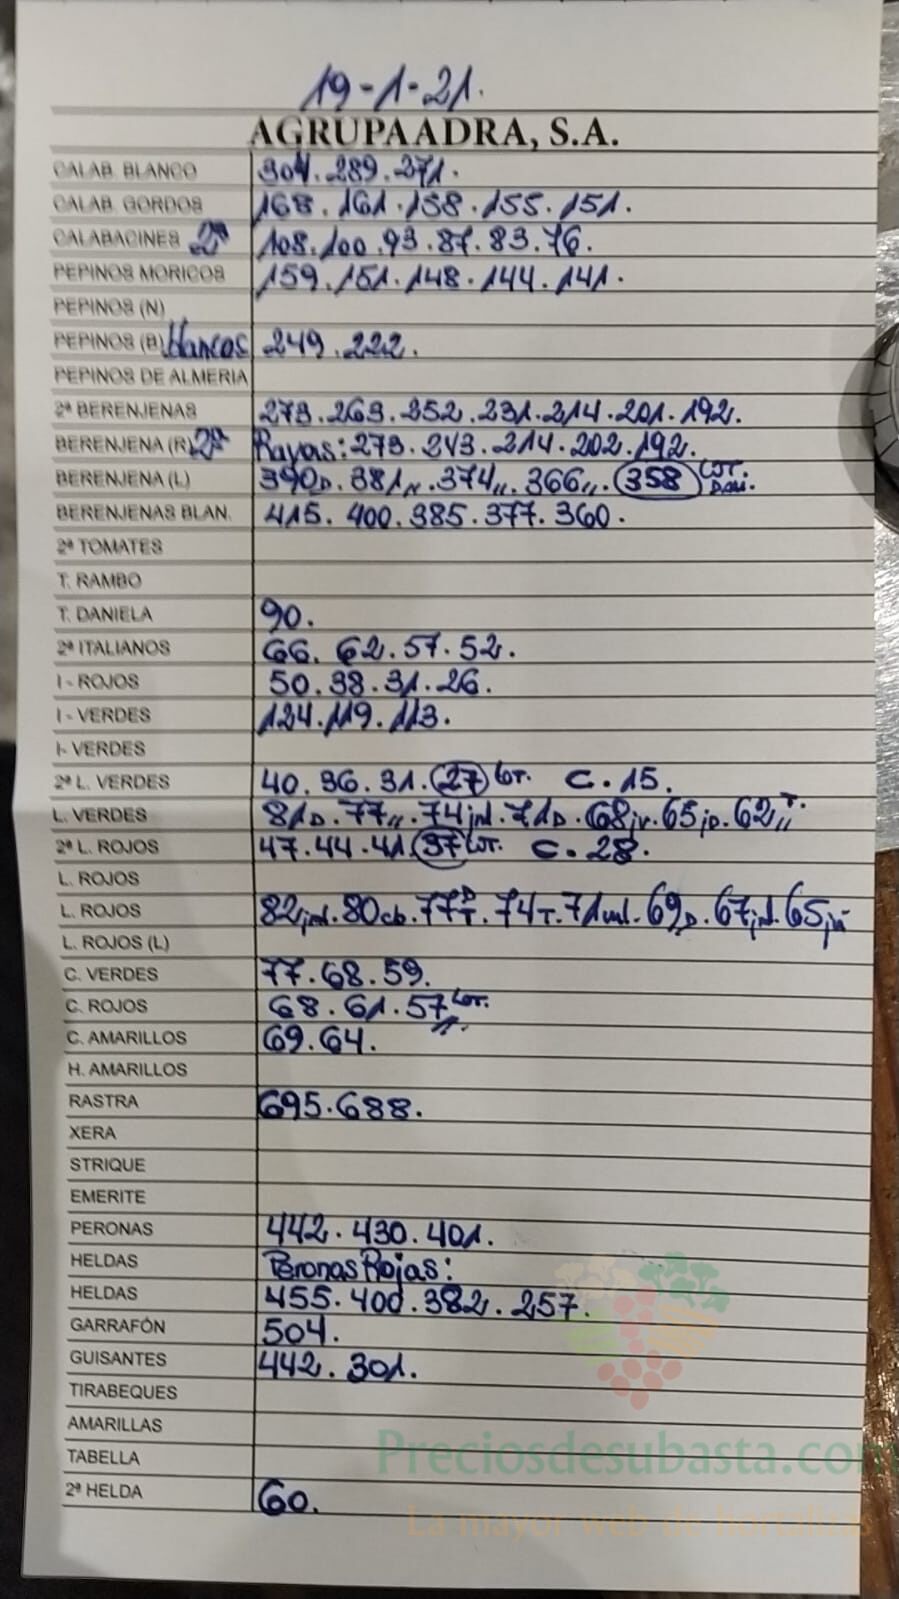 19-1-21.
AGRUPAADRA, S.A.
CALAB. BLANCO 304. 289. 271.
CALAB. GORDOS 168. 161. 158. 155. 151.
CALABACINES 2ª 108. 100. 93. 87. 83. 76.
PEPINOS MORICOS 159. 151. 148. 144. 141.
PEPINOS (N)
PEPINOS (B) blancos 249. 222.
PEPINOS DE ALMERIA
2ª BERENJENAS 273. 263. 252. 231. 214. 201. 192.
BERENJENA (R) 2ª Rayas: 273. 243. 214. 202. 192.
BERENJENA (L) 390D. 381,,. 374,,. 366,,. 358 COT.
BERENJENAS BLAN. 415. 400. 385. 377. 360.
2ª TOMATES
T. RAMBO
T. DANIELA 90.
2ª ITALIANOS 66. 62. 57. 52.
I - ROJOS 50. 38. 31. 26.
I - VERDES 124. 119. 113.
I- VERDES
2ª L. VERDES 40. 36. 31. 27 COT. C. 15.
L. VERDES 81D. 77,,. 74 71D. 68 65 62
2ª L. ROJOS 47. 44. 41. 37 COT. C. 28.
L. ROJOS
L. ROJOS 82 80cb. 77 74T. 71 69D. 67 65
L. ROJOS (L)
C. VERDES 77. 68. 59.
C. ROJOS 68. 61. 57 COT.
C. AMARILLOS 69. 64.
H. AMARILLOS
RASTRA 695. 688.
XERA
STRIQUE
EMERITE
PERONAS 442. 430. 401.
HELDAS Peronas Rojas:
HELDAS 455. 400. 382. 257.
GARRAFÓN 504.
GUISANTES 442. 301.
TIRABEQUES
AMARILLAS
TABELLA
2ª HELDA 60.
Preciosdesubasta.com
La mayor web de hortalizas